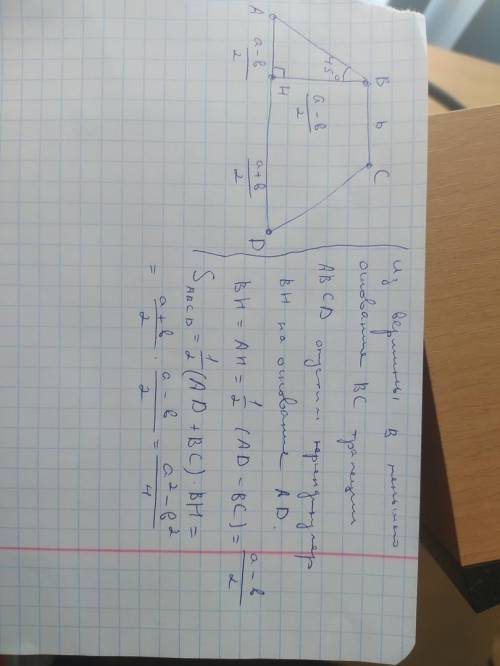 A
B
b
C
45°
a-b/2
a-b/2
H
a+b/2
D
Из вершины B меньшего
основания BC трапеции
ABCD опустим перпендикуляр
BH на основание AD.
BH = AH = 1/2 (AD - BC) = a-b/2
S ABCD = 1/2 (AD + BC) · BH =
= a+b/2 · a-b/2 = a²-b²/4